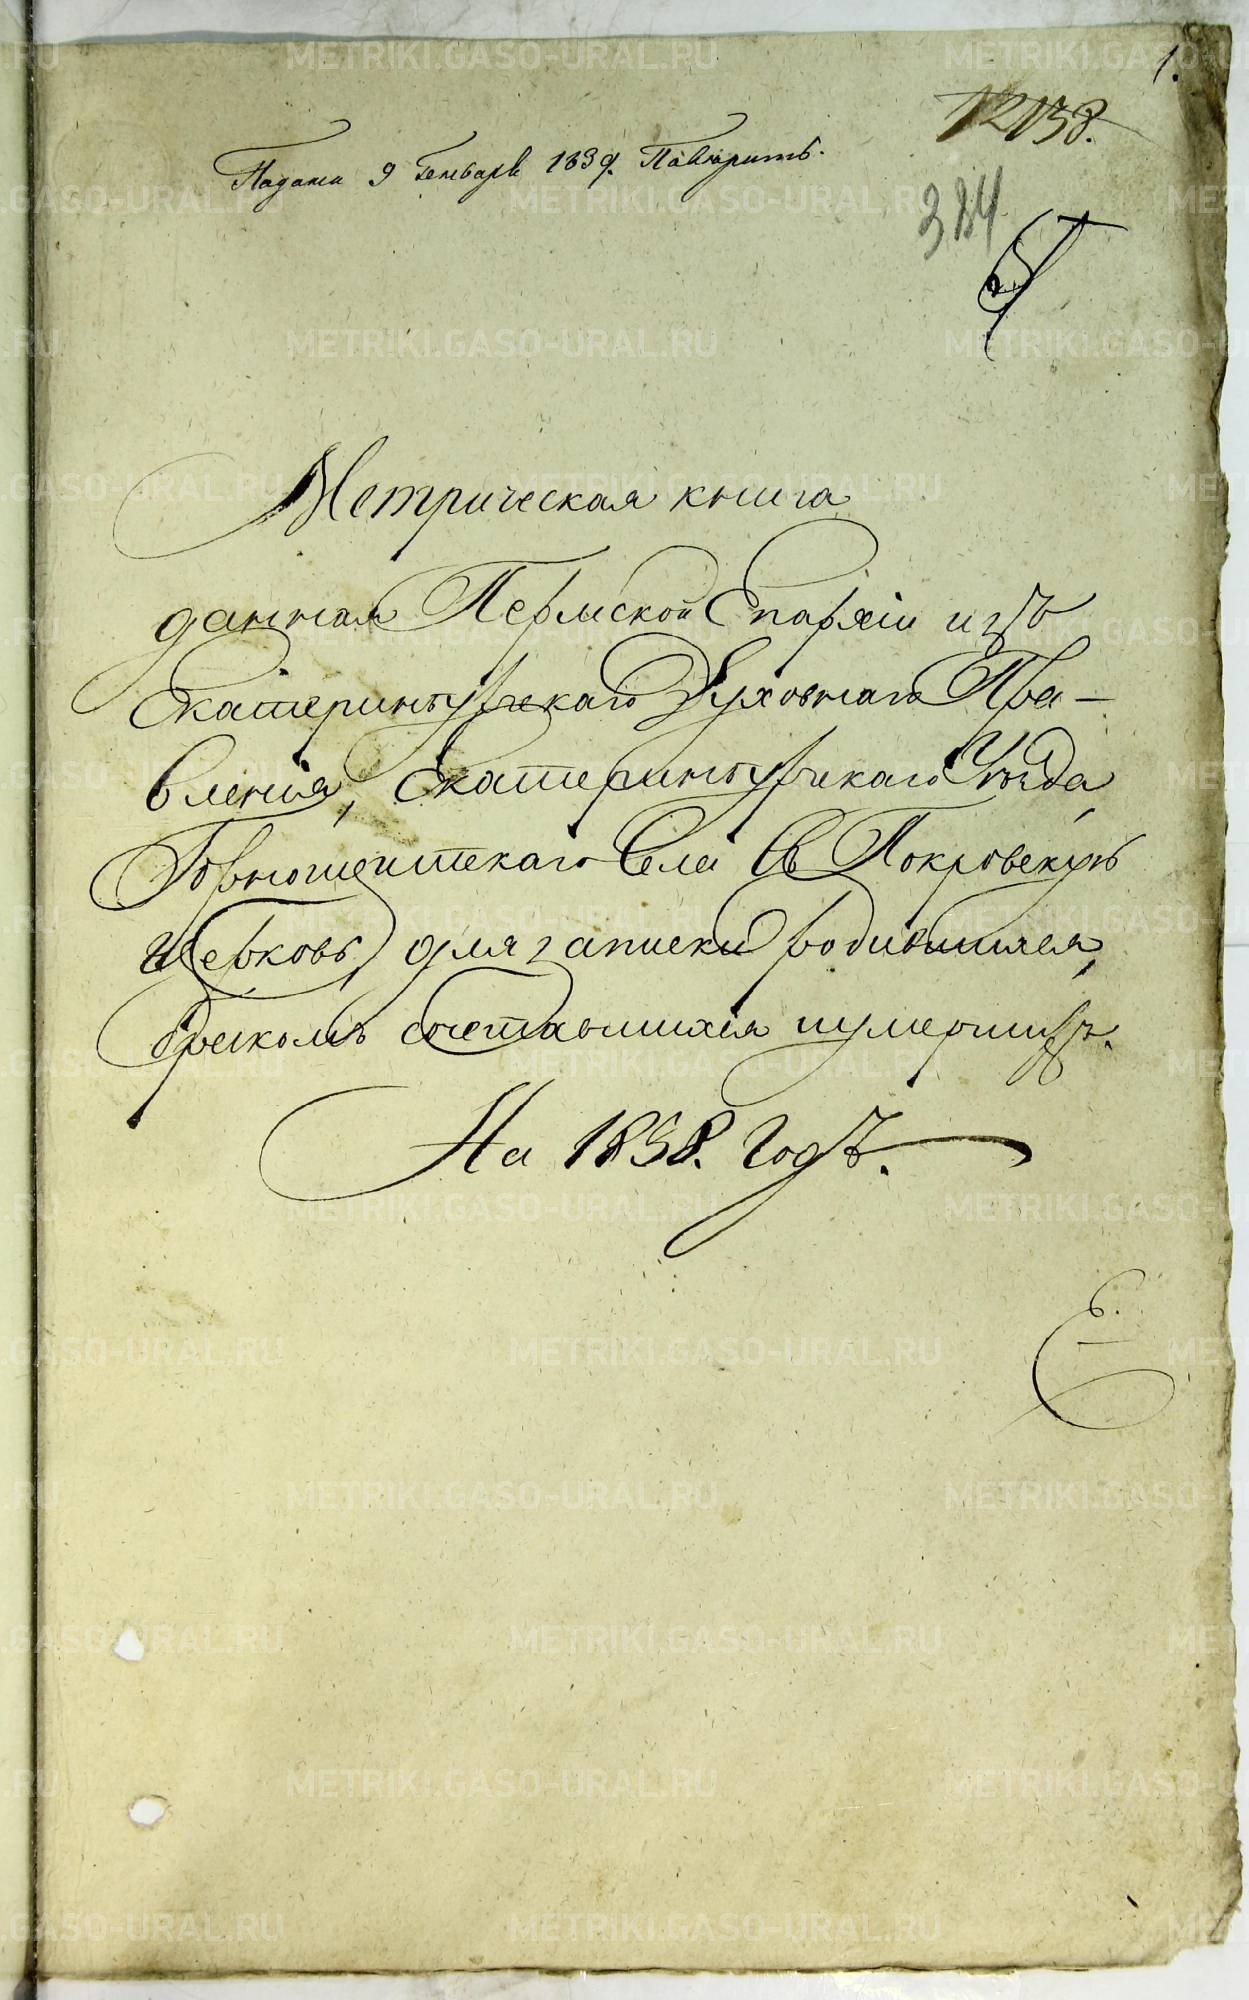 1.
12138.
Подана 9 Генваря 1839. Повѣрить.
384
Метрическая книга
данная Пермской Епархіи изъ
Екатеринбургскаго Духовнаго Пра-
вленія, Екатеринбургскаго Уѣзда
Горнощитскаго Села въ Покровскую
Церковь, для записки родившихся,
бракомъ сочетавшихся и умершихъ.
На 1838. Годъ.